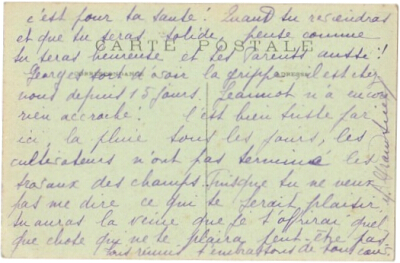 c'est pour ta santé! Quand tu reviendras
et que tu seras solide, pense comme
CARTE POSTALE
tu seras heureuse et tes parents aussi!
Georges vient d'avoir la grippe il est chez
nous depuis 15 jours. Jeannot n'a encore
rien accroché. C'est bien triste par
ici, la pluie tous les jours, les
cultivateurs n'ont pas terminé les
travaux des champs. Puisque tu ne veux
pas me dire ce qui te ferait plaisir
tu auras la veine que je t'offrirai quel
que chose qui ne te plaira peut-être pas
Tous réunis t'embrassons de tout cœur.